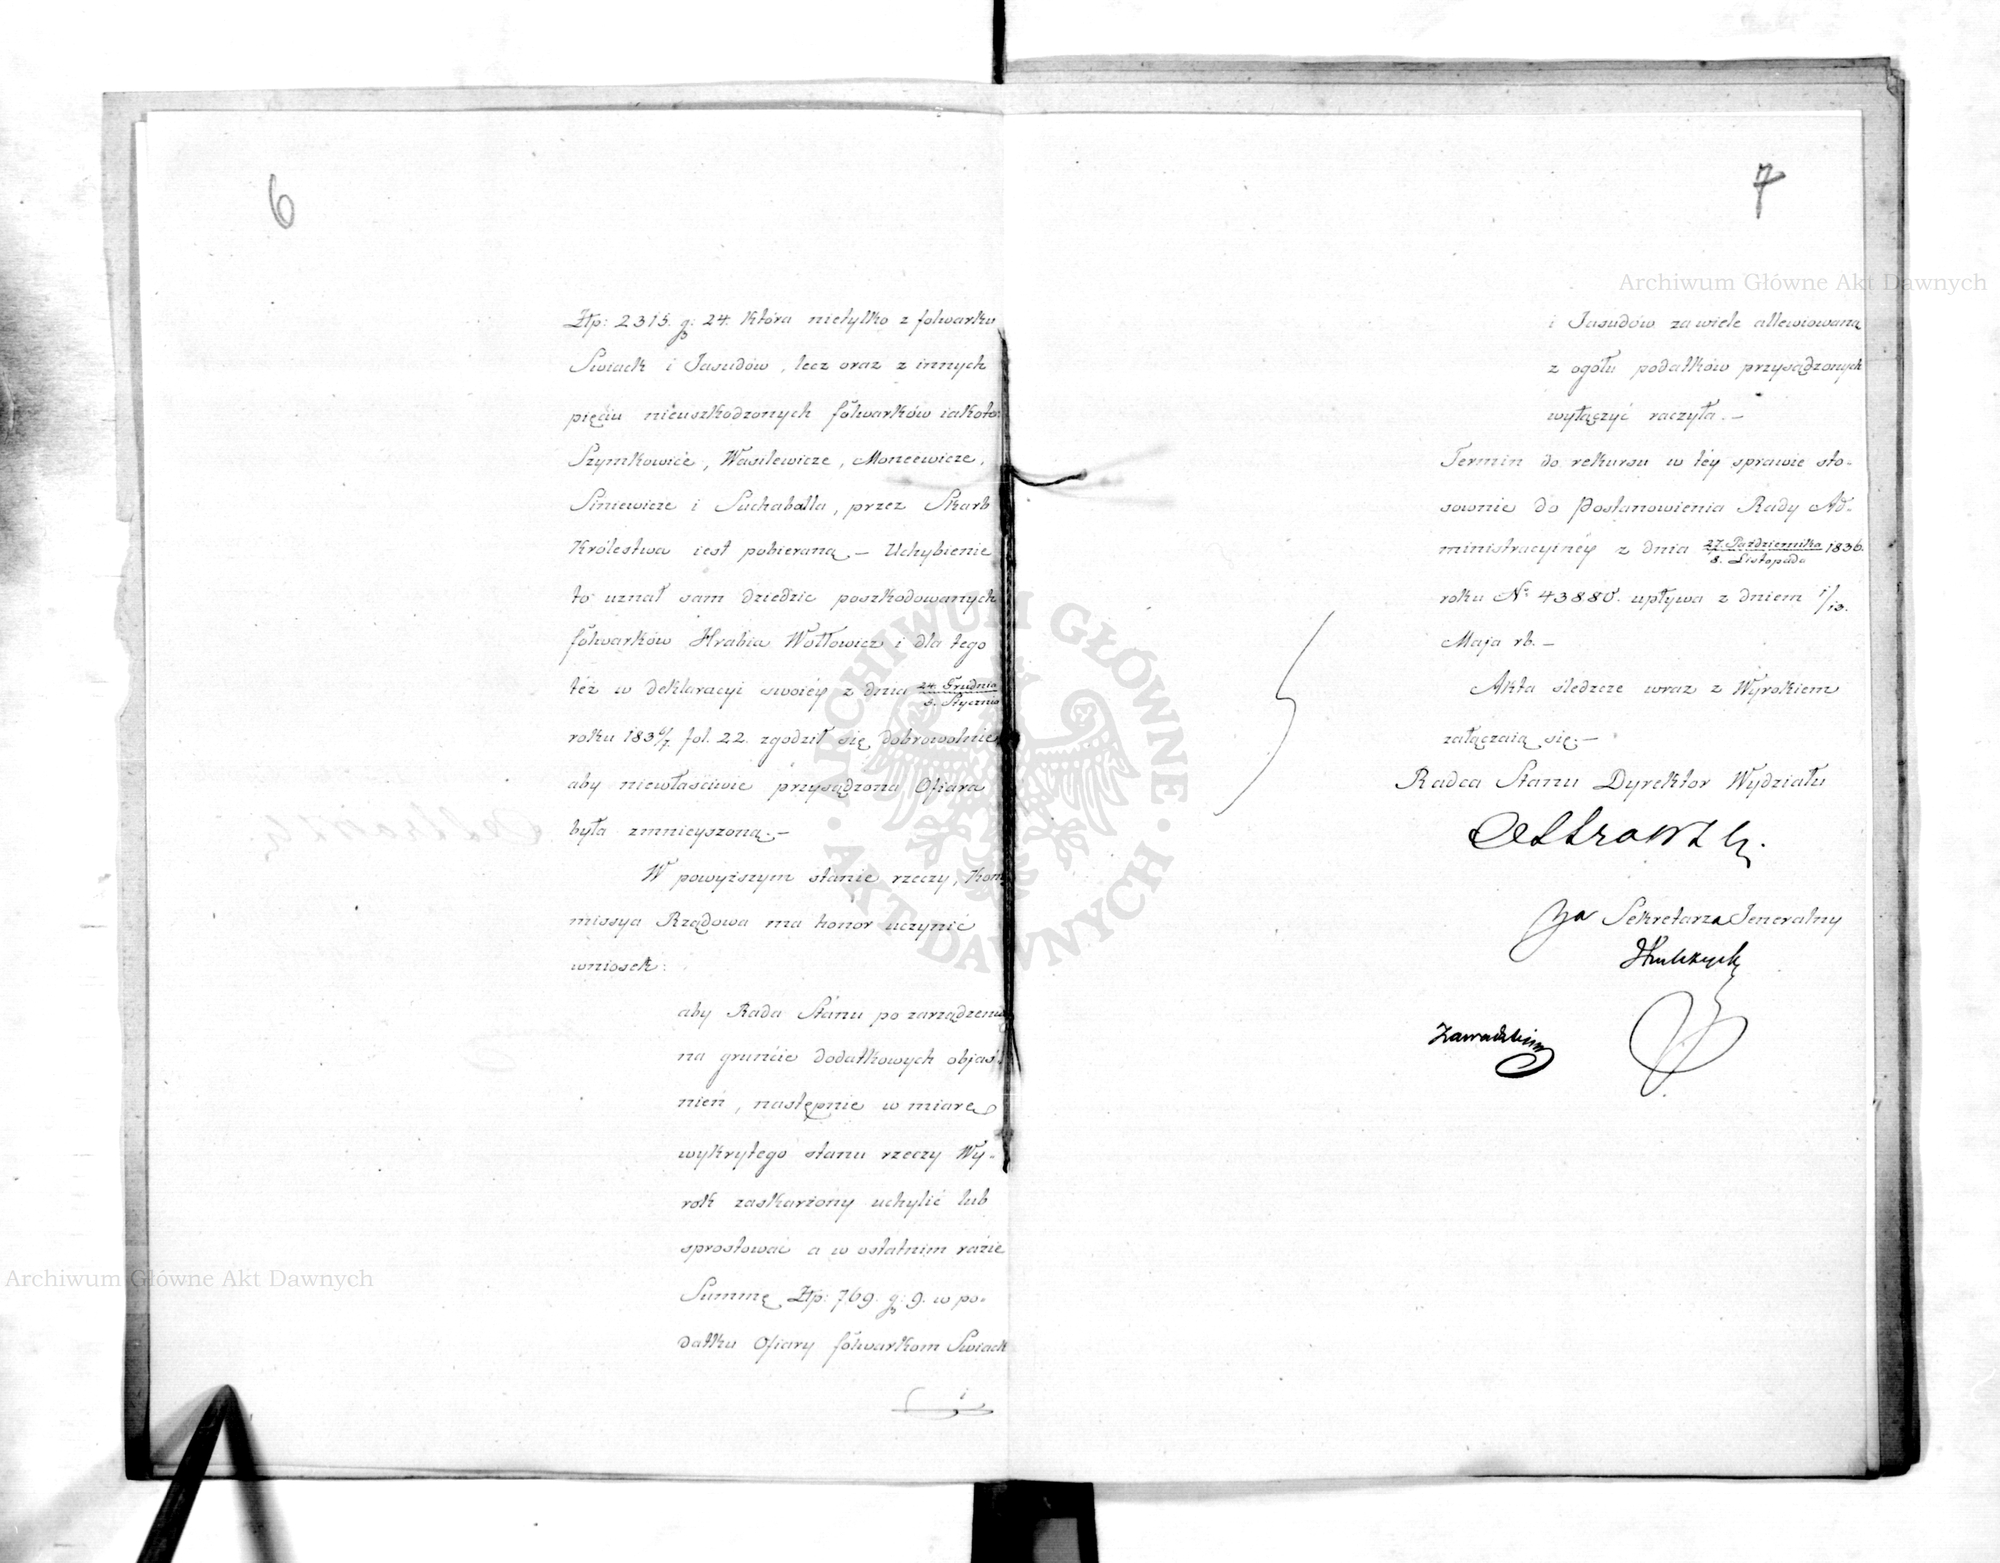 6
Złp: 2315. g: 24. która nietylko z folwarku
Swiack i Jasudów, lecz oraz z innych
pięciu nieuszkodzonych folwarków iakoto:
Szymkowice, Wasilewicze, Moncewicze,
Siniewicze i Suchaballa, przez Skarb
Królestwa iest pobieraną. — Uchybienie
to uznał sam dziedzic poszkodowanych
folwarków Hrabia Wołłowicz i dla tego
też w deklaracyi swoiéy z dnia 24. Grudnia / 5. Stycznia
roku 1836/7 fol. 22. zgodził się dobrowolnie
aby niewłaściwie przysądzona Ofiara
była zmnieyszoną. —
W powyższym stanie rzeczy, Kom
missya Rządowa ma honor uczynić
wniosek:
aby Rada Stanu po zarządzeniu
na gruncie dodatkowych objaś-
nień, następnie w miarę
wykrytego stanu rzeczy Wy-
rok zaskarżony uchylić lub
sprostować a w ostatnim razie
Summę Złp: 769. g: 9. w po-
datku Ofiary folwarkom Swiack
i
7
i Jasudów zawiele allewiowaną
z ogółu podatków przysądzonych
wyłączyć raczyła. —
Termin do rekursu w téy sprawie sto-
sownie do Postanowienia Rady Ad-
ministracyinéy z dnia 27. Października / 8. Listopada 1836.
roku No 43880. upływa z dniem 1/13.
Maja rb. —
Akta śledcze wraz z Wyrokiem
załączaią się. —
Radca Stanu Dyrektor Wydziału
za Sekretarza Jeneralny
Archiwum Główne Akt Dawnych
Archiwum Główne Akt Dawnych
ARCHIWUM GŁÓWNE · AKT DAWNYCH ·